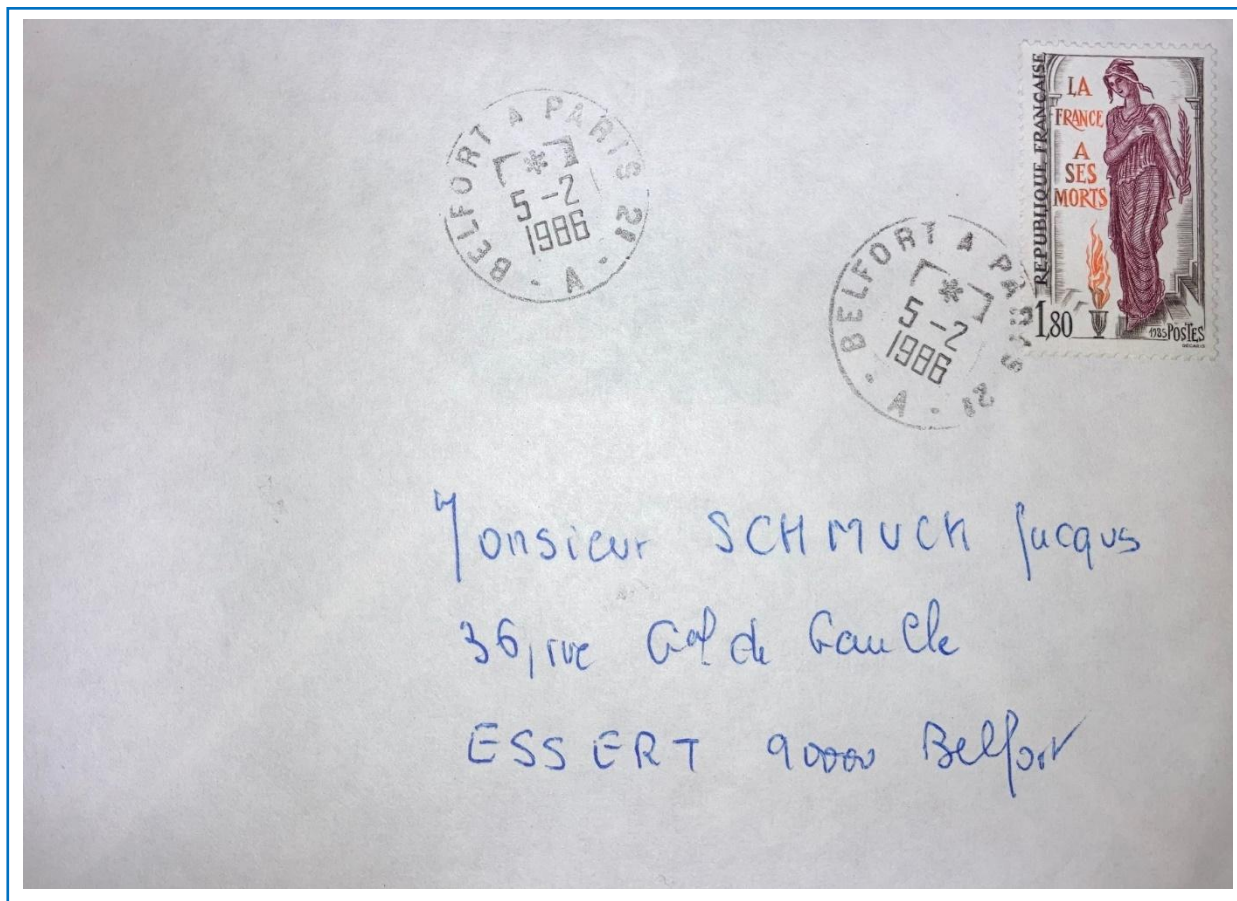 BELFORT A PARIS 21
5-2
1986
- A -
BELFORT A PARIS 21
5-2
1986
- A -
REPUBLIQUE FRANÇAISE
LA
FRANCE
A
SES
MORTS
1,80
1985 POSTES
DECARIS
Monsieur SCHMUCK Jacques
36, rue Gal de Gaulle
ESSERT 90000 Belfort